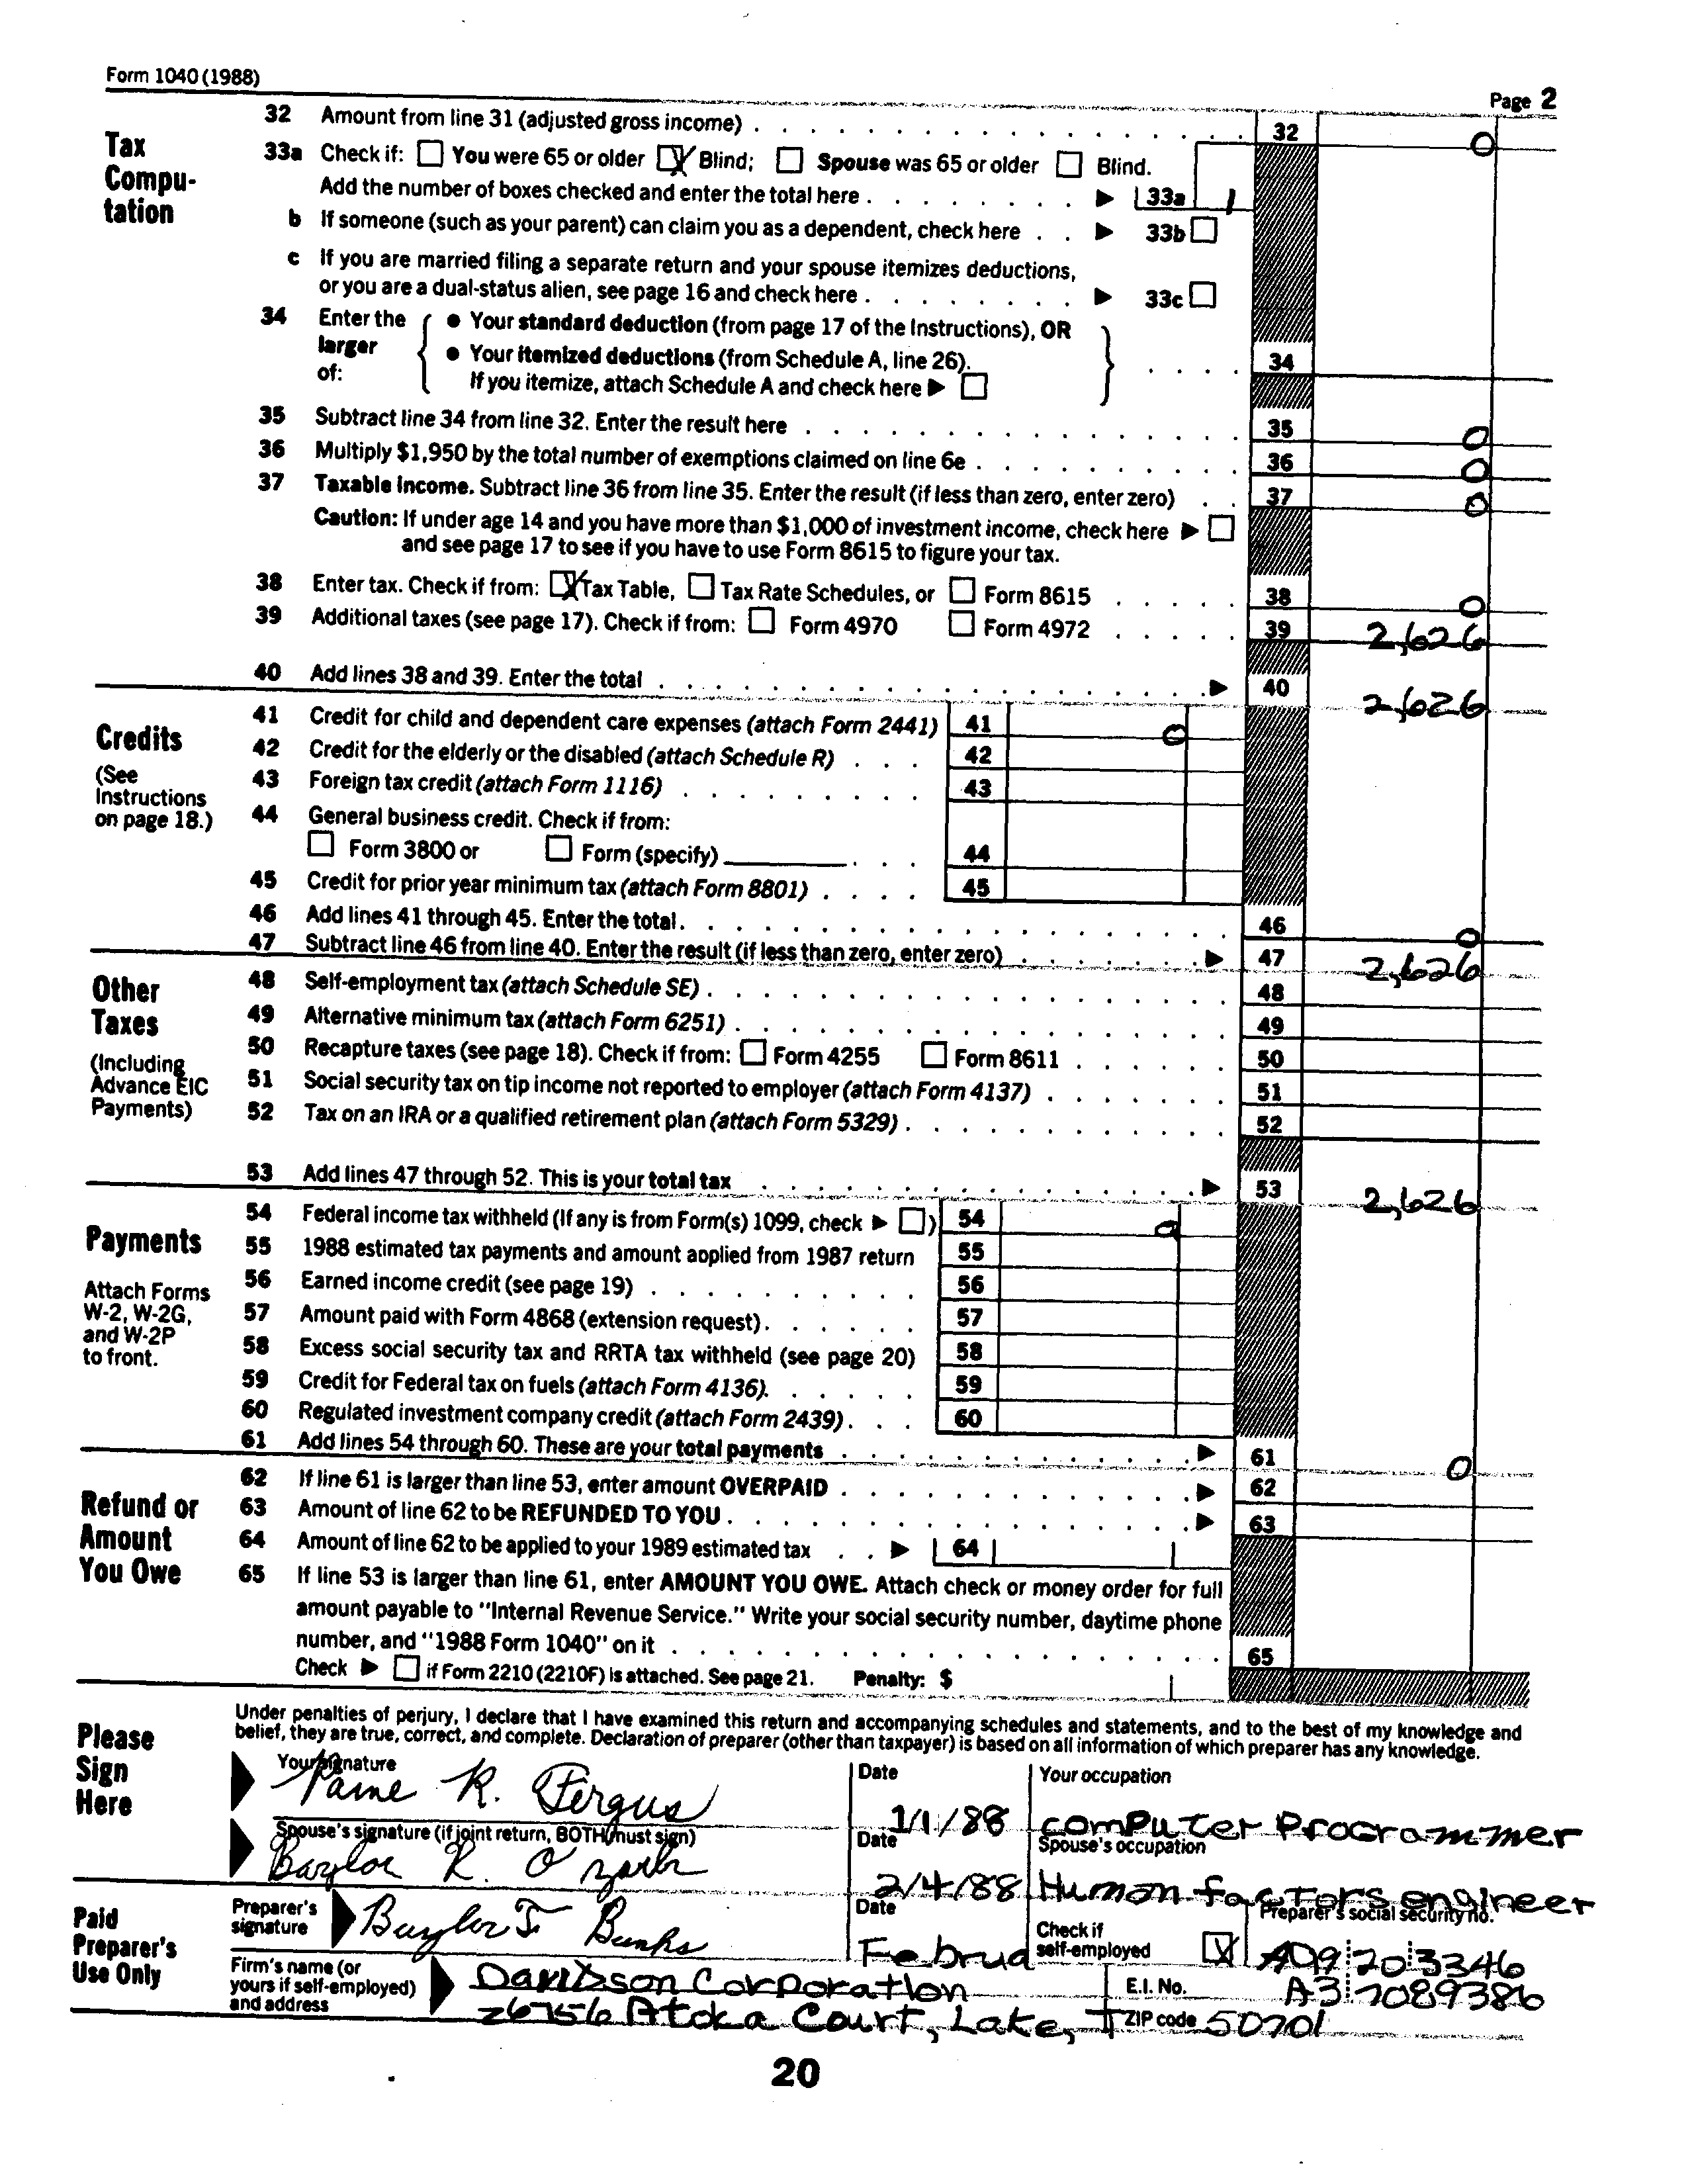 Form 1040 (1988)
Page 2
Tax Compu-tation
32 Amount from line 31 (adjusted gross income) . . . 32 0
33a Check if: You were 65 or older Blind; Spouse was 65 or older Blind.
Add the number of boxes checked and enter the total here . . . 33a 1
b If someone (such as your parent) can claim you as a dependent, check here . . 33b
c If you are married filing a separate return and your spouse itemizes deductions,
or you are a dual-status alien, see page 16 and check here . . . 33c
34 Enter the larger of: • Your standard deduction (from page 17 of the Instructions), OR
• Your itemized deductions (from Schedule A, line 26).
If you itemize, attach Schedule A and check here . . . 34
35 Subtract line 34 from line 32. Enter the result here . . . 35 0
36 Multiply $1,950 by the total number of exemptions claimed on line 6e . . . 36 0
37 Taxable income. Subtract line 36 from line 35. Enter the result (if less than zero, enter zero) . . 37 0
Caution: If under age 14 and you have more than $1,000 of investment income, check here
and see page 17 to see if you have to use Form 8615 to figure your tax.
38 Enter tax. Check if from: Tax Table, Tax Rate Schedules, or Form 8615 . . . 38 0
39 Additional taxes (see page 17). Check if from: Form 4970 Form 4972 . . . 39 2,626
40 Add lines 38 and 39. Enter the total . . . 40 2,626
Credits
(See Instructions on page 18.)
41 Credit for child and dependent care expenses (attach Form 2441) 41 0
42 Credit for the elderly or the disabled (attach Schedule R) . . . 42
43 Foreign tax credit (attach Form 1116) . . . 43
44 General business credit. Check if from:
Form 3800 or Form (specify) . . . 44
45 Credit for prior year minimum tax (attach Form 8801) . . . 45
46 Add lines 41 through 45. Enter the total . . . 46 0
47 Subtract line 46 from line 40. Enter the result (if less than zero, enter zero) . . . 47 2,626
Other Taxes
(Including Advance EIC Payments)
48 Self-employment tax (attach Schedule SE) . . . 48
49 Alternative minimum tax (attach Form 6251) . . . 49
50 Recapture taxes (see page 18). Check if from: Form 4255 Form 8611 . . . 50
51 Social security tax on tip income not reported to employer (attach Form 4137) . . . 51
52 Tax on an IRA or a qualified retirement plan (attach Form 5329) . . . 52
53 Add lines 47 through 52. This is your total tax . . . 53 2,626
Payments
Attach Forms W-2, W-2G, and W-2P to front.
54 Federal income tax withheld (If any is from Form(s) 1099, check ) 54 0
55 1988 estimated tax payments and amount applied from 1987 return 55
56 Earned income credit (see page 19) . . . 56
57 Amount paid with Form 4868 (extension request) . . . 57
58 Excess social security tax and RRTA tax withheld (see page 20) 58
59 Credit for Federal tax on fuels (attach Form 4136). . . . 59
60 Regulated investment company credit (attach Form 2439) . . . 60
61 Add lines 54 through 60. These are your total payments . . . 61 0
Refund or Amount You Owe
62 If line 61 is larger than line 53, enter amount OVERPAID . . . 62
63 Amount of line 62 to be REFUNDED TO YOU . . . 63
64 Amount of line 62 to be applied to your 1989 estimated tax . . 64
65 If line 53 is larger than line 61, enter AMOUNT YOU OWE. Attach check or money order for full
amount payable to "Internal Revenue Service." Write your social security number, daytime phone
number, and "1988 Form 1040" on it . . . 65
Check if Form 2210 (2210F) is attached. See page 21. Penalty: $
Please Sign Here
Under penalties of perjury, I declare that I have examined this return and accompanying schedules and statements, and to the best of my knowledge and
belief, they are true, correct, and complete. Declaration of preparer (other than taxpayer) is based on all information of which preparer has any knowledge.
Your signature Date Your occupation
R. Fergus 1/1/88 computer Programmer
Spouse's signature (if joint return, BOTH must sign) Date Spouse's occupation
Baylor R. 2/4/88 Human factors engineer
Paid Preparer's Use Only
Preparer's signature Date Check if self-employed Preparer's social security no.
Baylor Banks Februa A09 20 3346
Firm's name (or yours if self-employed) and address E.I. No. A3 7089386
Davidson Corporation
26756 Atoka Court, Lake, I ZIP code 50701
20